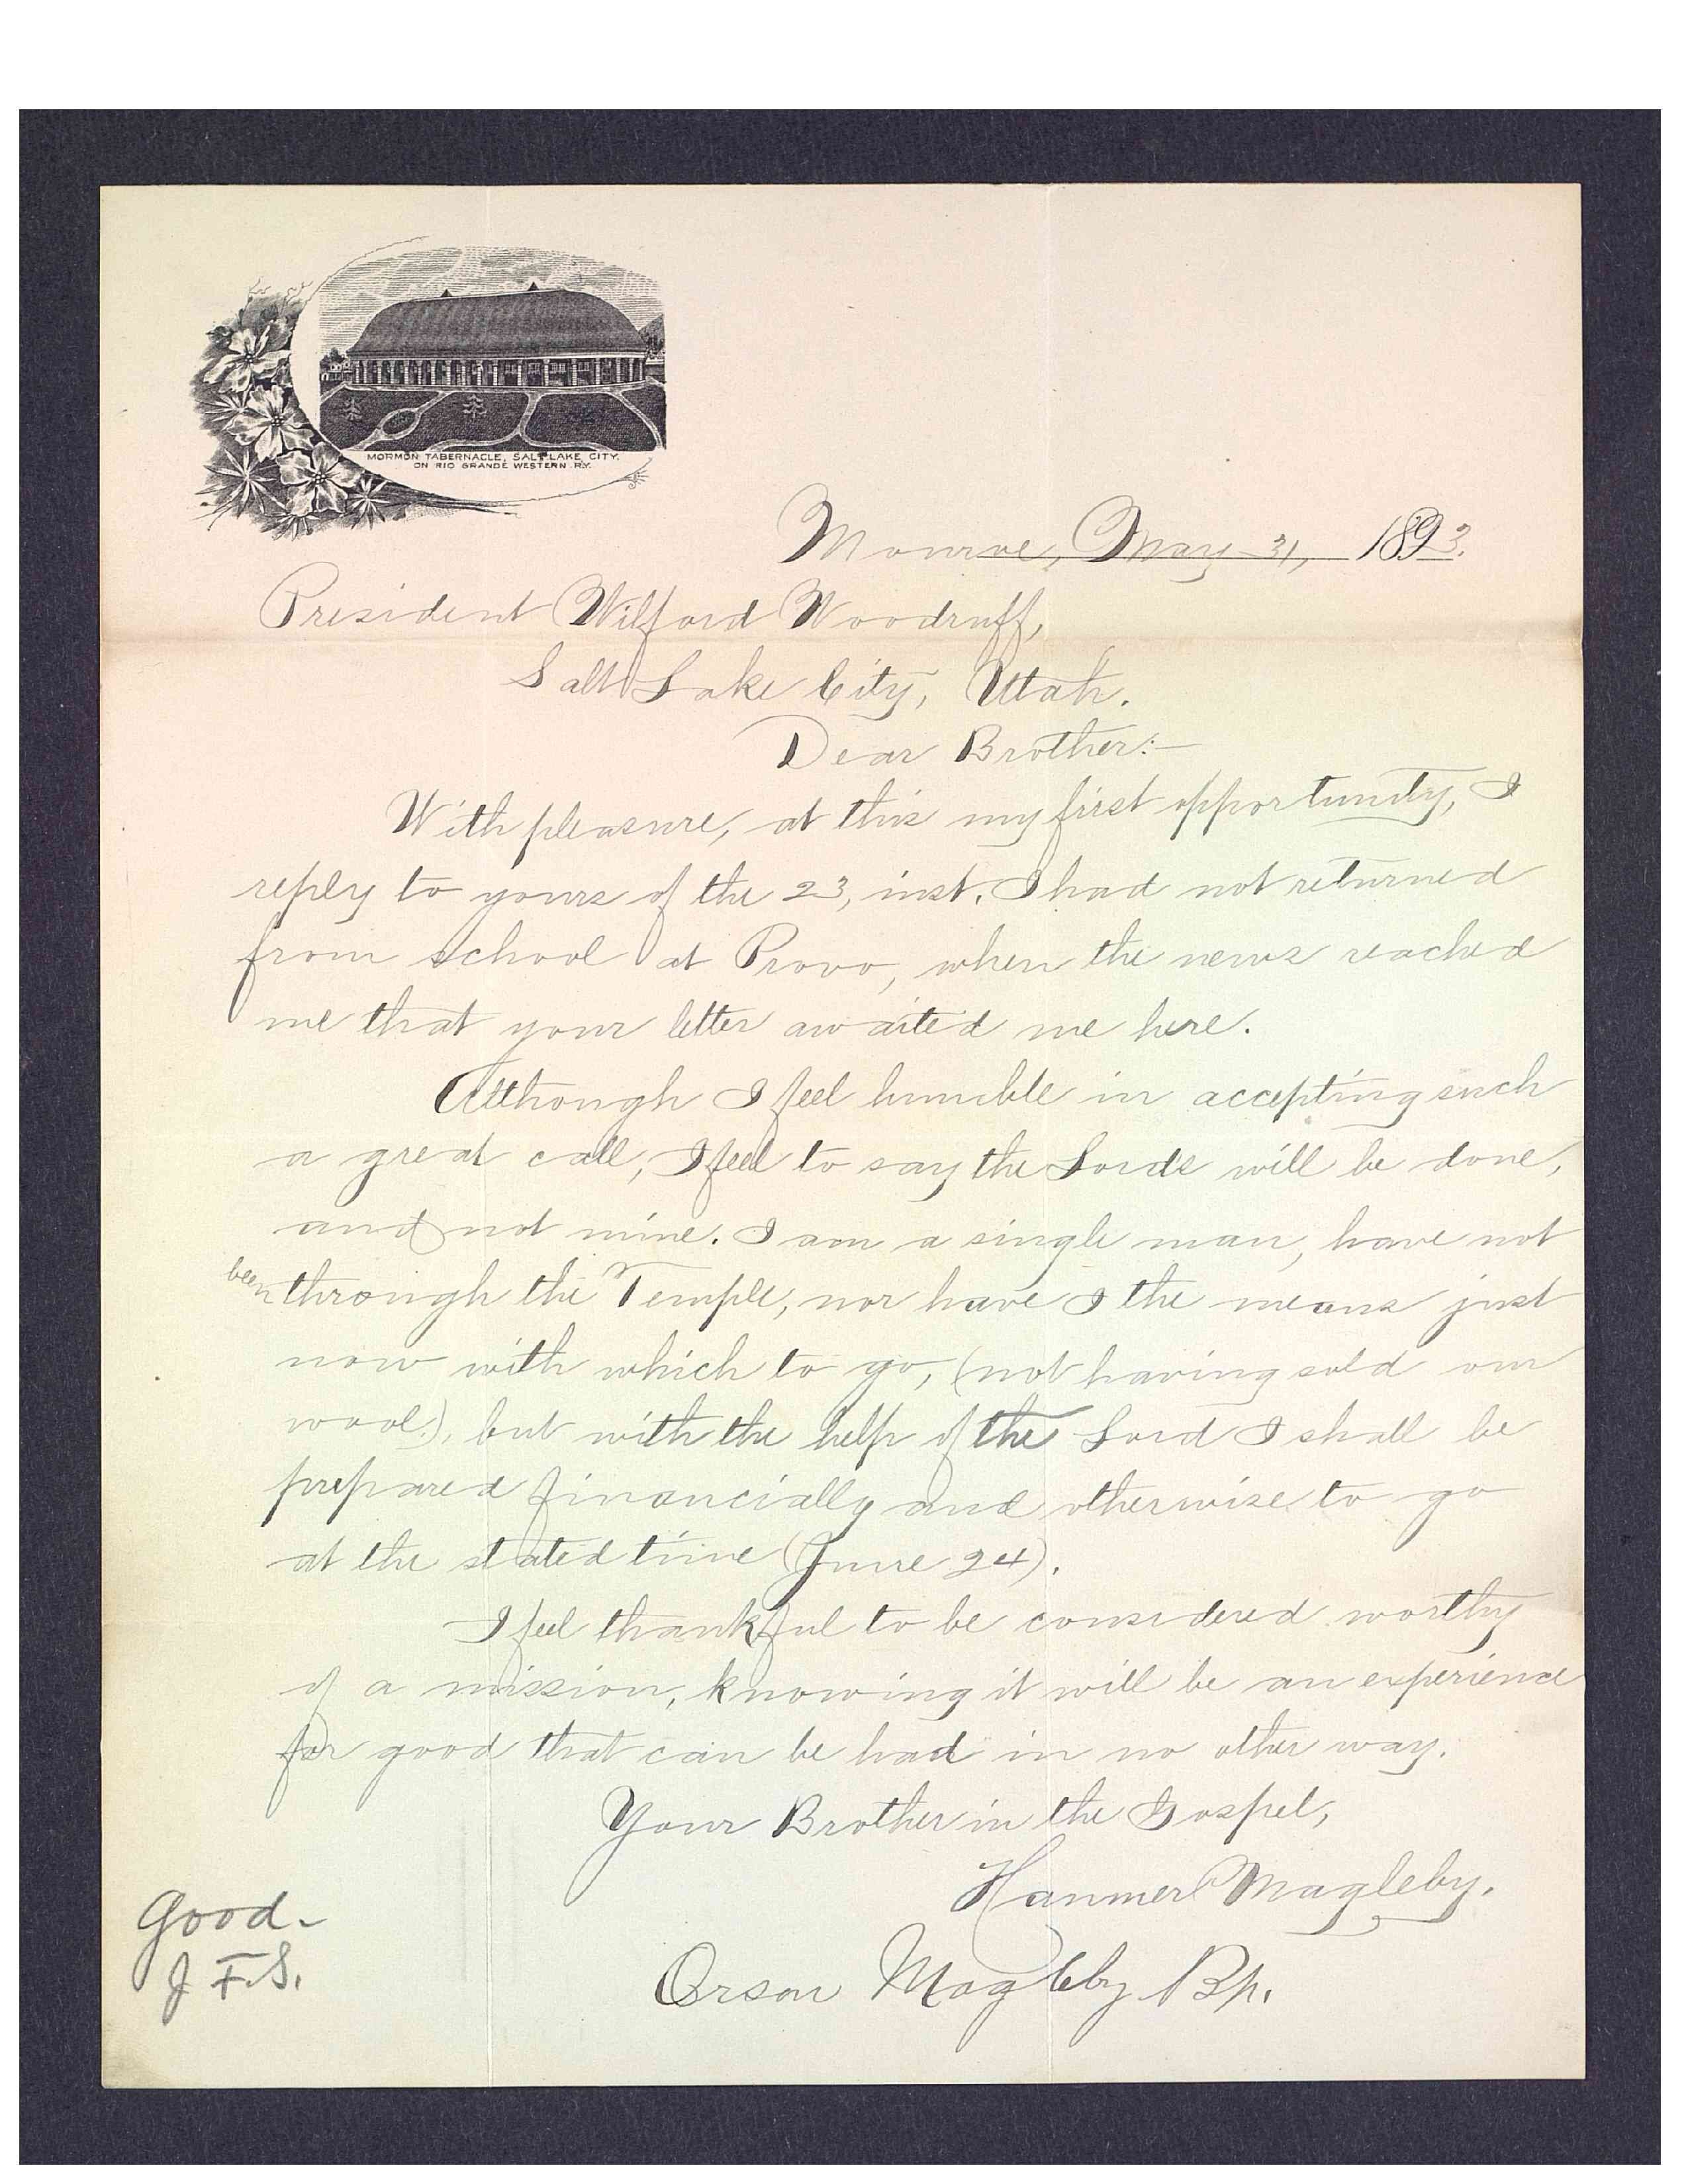 MORMON TABERNACLE, SALT LAKE CITY.
ON RIO GRANDE WESTERN RY.
Monroe, May 31, 1893.
President Wilford Woodruff,
Salt Lake City, Utah.
Dear Brother:—
With pleasure, at this my first opportunity, I
reply to yours of the 23, inst. I had not returned
from school at Provo, when the news reached
me that your letter awaited me here.
Although I feel humble in accepting such
a great call, I feel to say the Lords will be done,
and not mine. I am a single man, have not
been through the Temple, nor have I the means just
now with which to go, (not having sold our
wool), but with the help of the Lord I shall be
prepared financially and otherwise to go
at the stated time (June 24).
I feel thankful to be considered worthy
of a mission, knowing it will be an experience
for good that can be had in no other way.
Your Brother in the Gospel,
Hanmer Magleby.
Orson Magleby Bp.
Good.
J F.S.